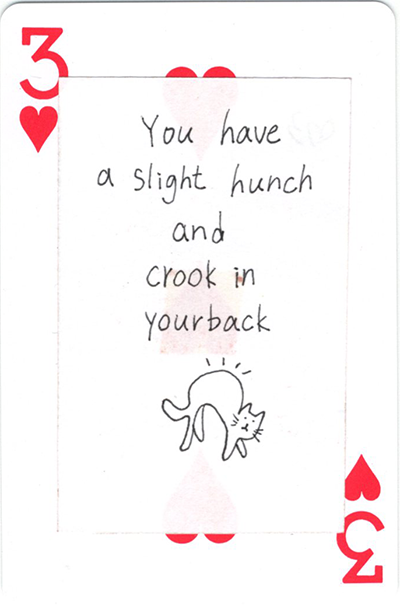 3
You have
a slight hunch
and
crook in
yourback
3